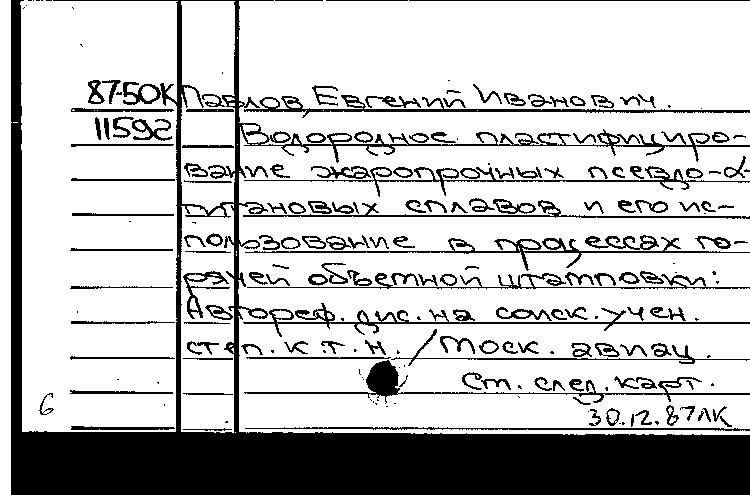 87-50К Павлов, Евгений Иванович.
11592 Водородное пластифициро-
вание жаропрочных псевдо-α-
титановых сплавов и его ис-
пользование в процессах го-
рячей объемной штамповки:
Автореф. дис. на соиск. учен.
степ. к.т.н. / Моск. авиац.
См. след. карт.
6 30.12.87ЛК